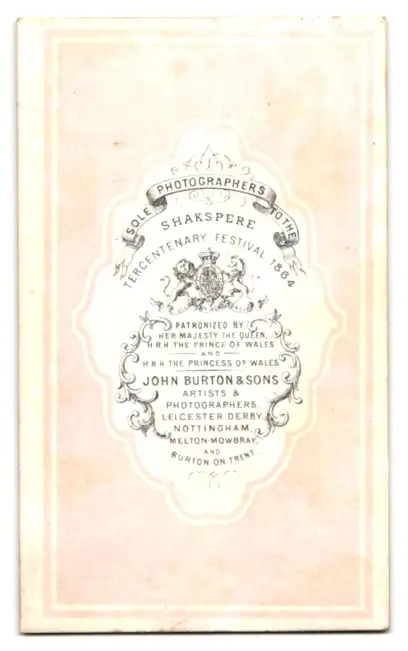 SOLE PHOTOGRAPHERS TO THE
SHAKSPERE
TERCENTENARY FESTIVAL 1864
PATRONIZED BY
HER MAJESTY THE QUEEN,
H.R.H THE PRINCE OF WALES
AND
H.R.H THE PRINCESS OF WALES
JOHN BURTON & SONS
ARTISTS &
PHOTOGRAPHERS
LEICESTER DERBY
NOTTINGHAM
MELTON-MOWBRAY
AND
BURTON ON TRENT